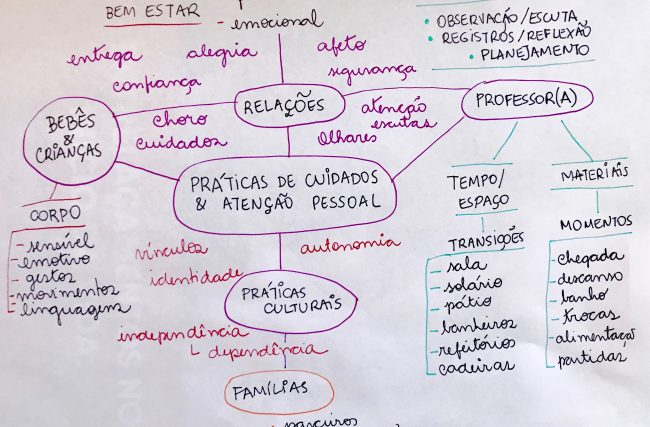 BEM ESTAR
- emocional
• OBSERVAÇÃO/ESCUTA
• REGISTROS/REFLEXÃO
• PLANEJAMENTO
entrega
alegria
afeto
confiança
segurança
BEBÊS
&
CRIANÇAS
choro
cuidados
RELAÇÕES
atenção
escutas
olhares
PROFESSOR(A)
PRÁTICAS DE CUIDADOS
& ATENÇÃO PESSOAL
CORPO
- sensível
- emotivo
- gestos
- movimentos
- linguagens
vínculos
identidade
autonomia
PRÁTICAS
CULTURAIS
independência
dependência
FAMÍLIAS
TEMPO/
ESPAÇO
TRANSIÇÕES
- sala
- solário
- pátio
- banheiros
- refeitórios
- cadeiras
MATERIAIS
MOMENTOS
- chegada
- descanso
- banho
- trocas
- alimentação
- partidas